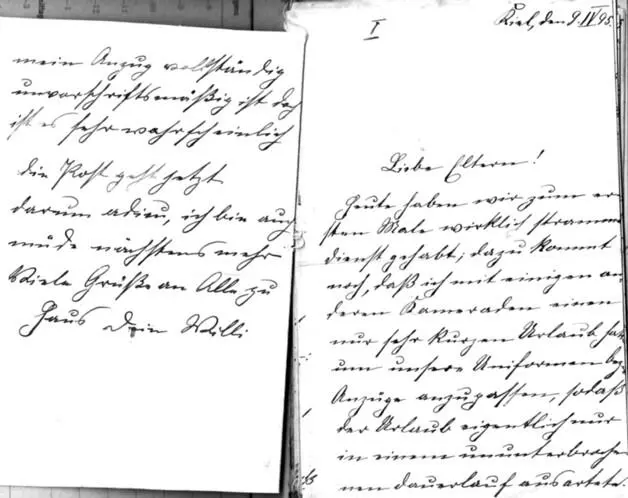 mein Anzug vollständig
unvorschriftsmäßig ist doch
ist es sehr wahrscheinlich
die Post geht jetzt
darum adieu, ich bin auch
müde nächstens mehr
Viele Grüße an Alle zu
Haus Dein Willi
I
Kiel, den 9.IV 95.
Liebe Eltern!
Heute haben wir zum er-
sten Male wirklich stramm
dienst gehabt; dazu kommt
noch, daß ich mit einigen an-
deren Kameraden einen
nur sehr kurzen Urlaub hatte
um unsere Uniformen bez.
Anzüge anzupassen, sodaß
der Urlaub eigentlich nur
in einem ununterbroche
nen dauerlauf ausartete.